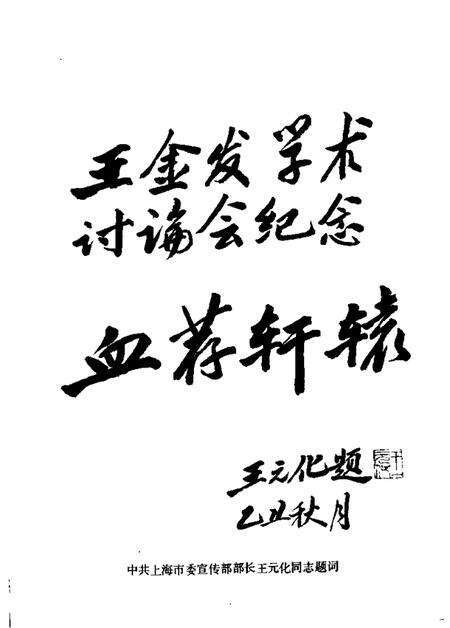 王金发学术
讨论会纪念
血荐轩辕
王元化题
乙丑秋月
中共上海市委宣传部部长王元化同志题词